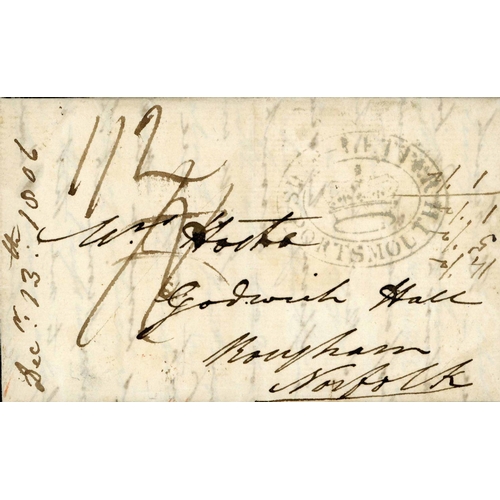 Decr. 13.th 1806
1/2
SHIP LETTER
PORTSMOUTH
Mrs Hoste
Godwick Hall
Rougham
Norfolk